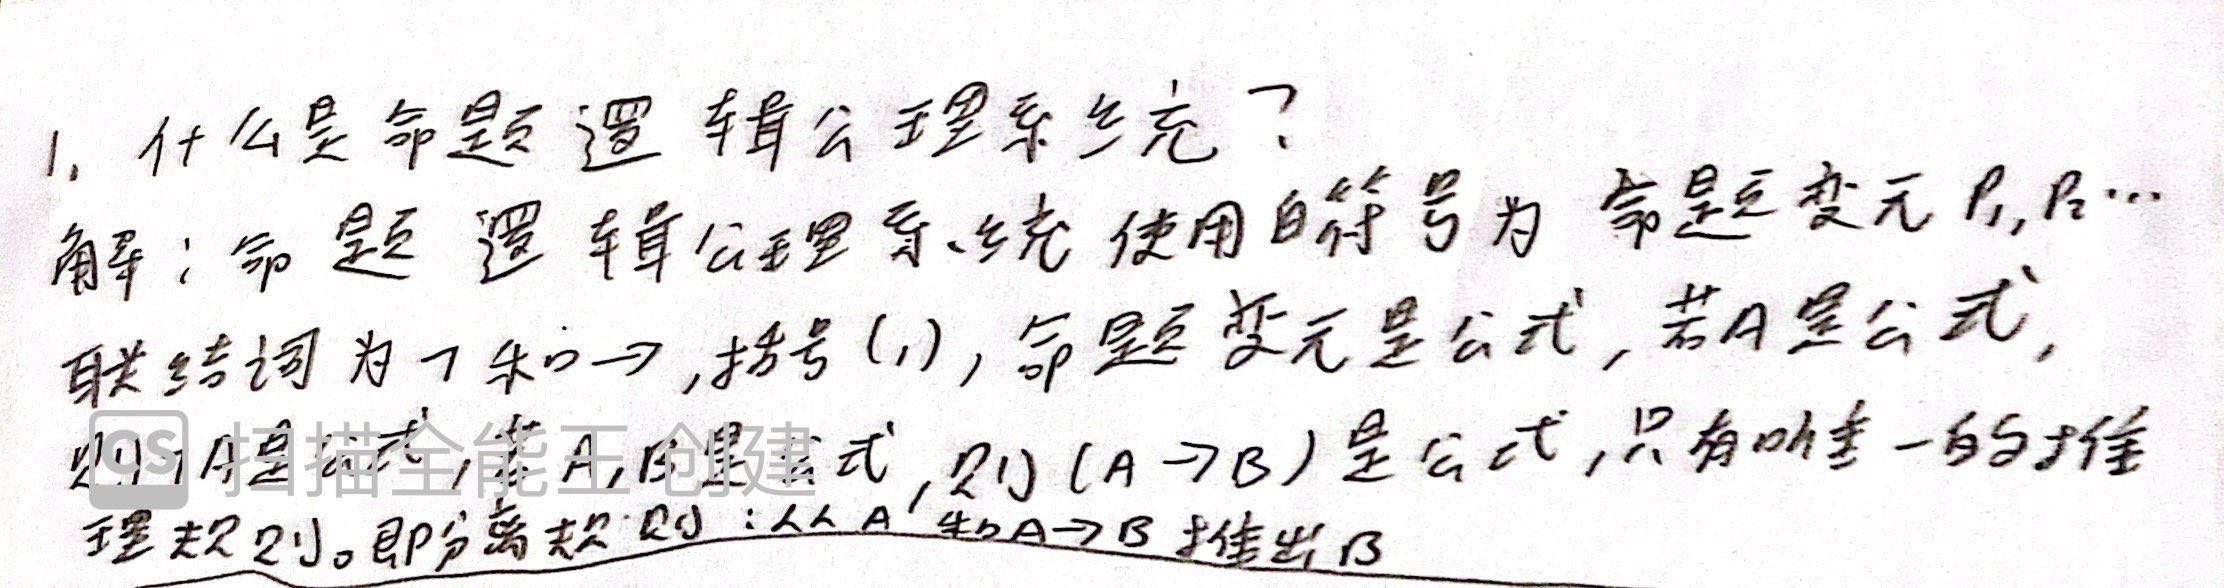 1. 什么是命题逻辑公理系统?
解:命题逻辑公理系统使用的符号为命题变元P₁,P₂…
联结词为¬和→,括号(,),命题变元是公式,若A是公式,
则¬A是公式,若A,B是公式,则(A→B)是公式,只有唯一的推
理规则。即分离规则:从A和A→B推出B
CS 扫描全能王 创建